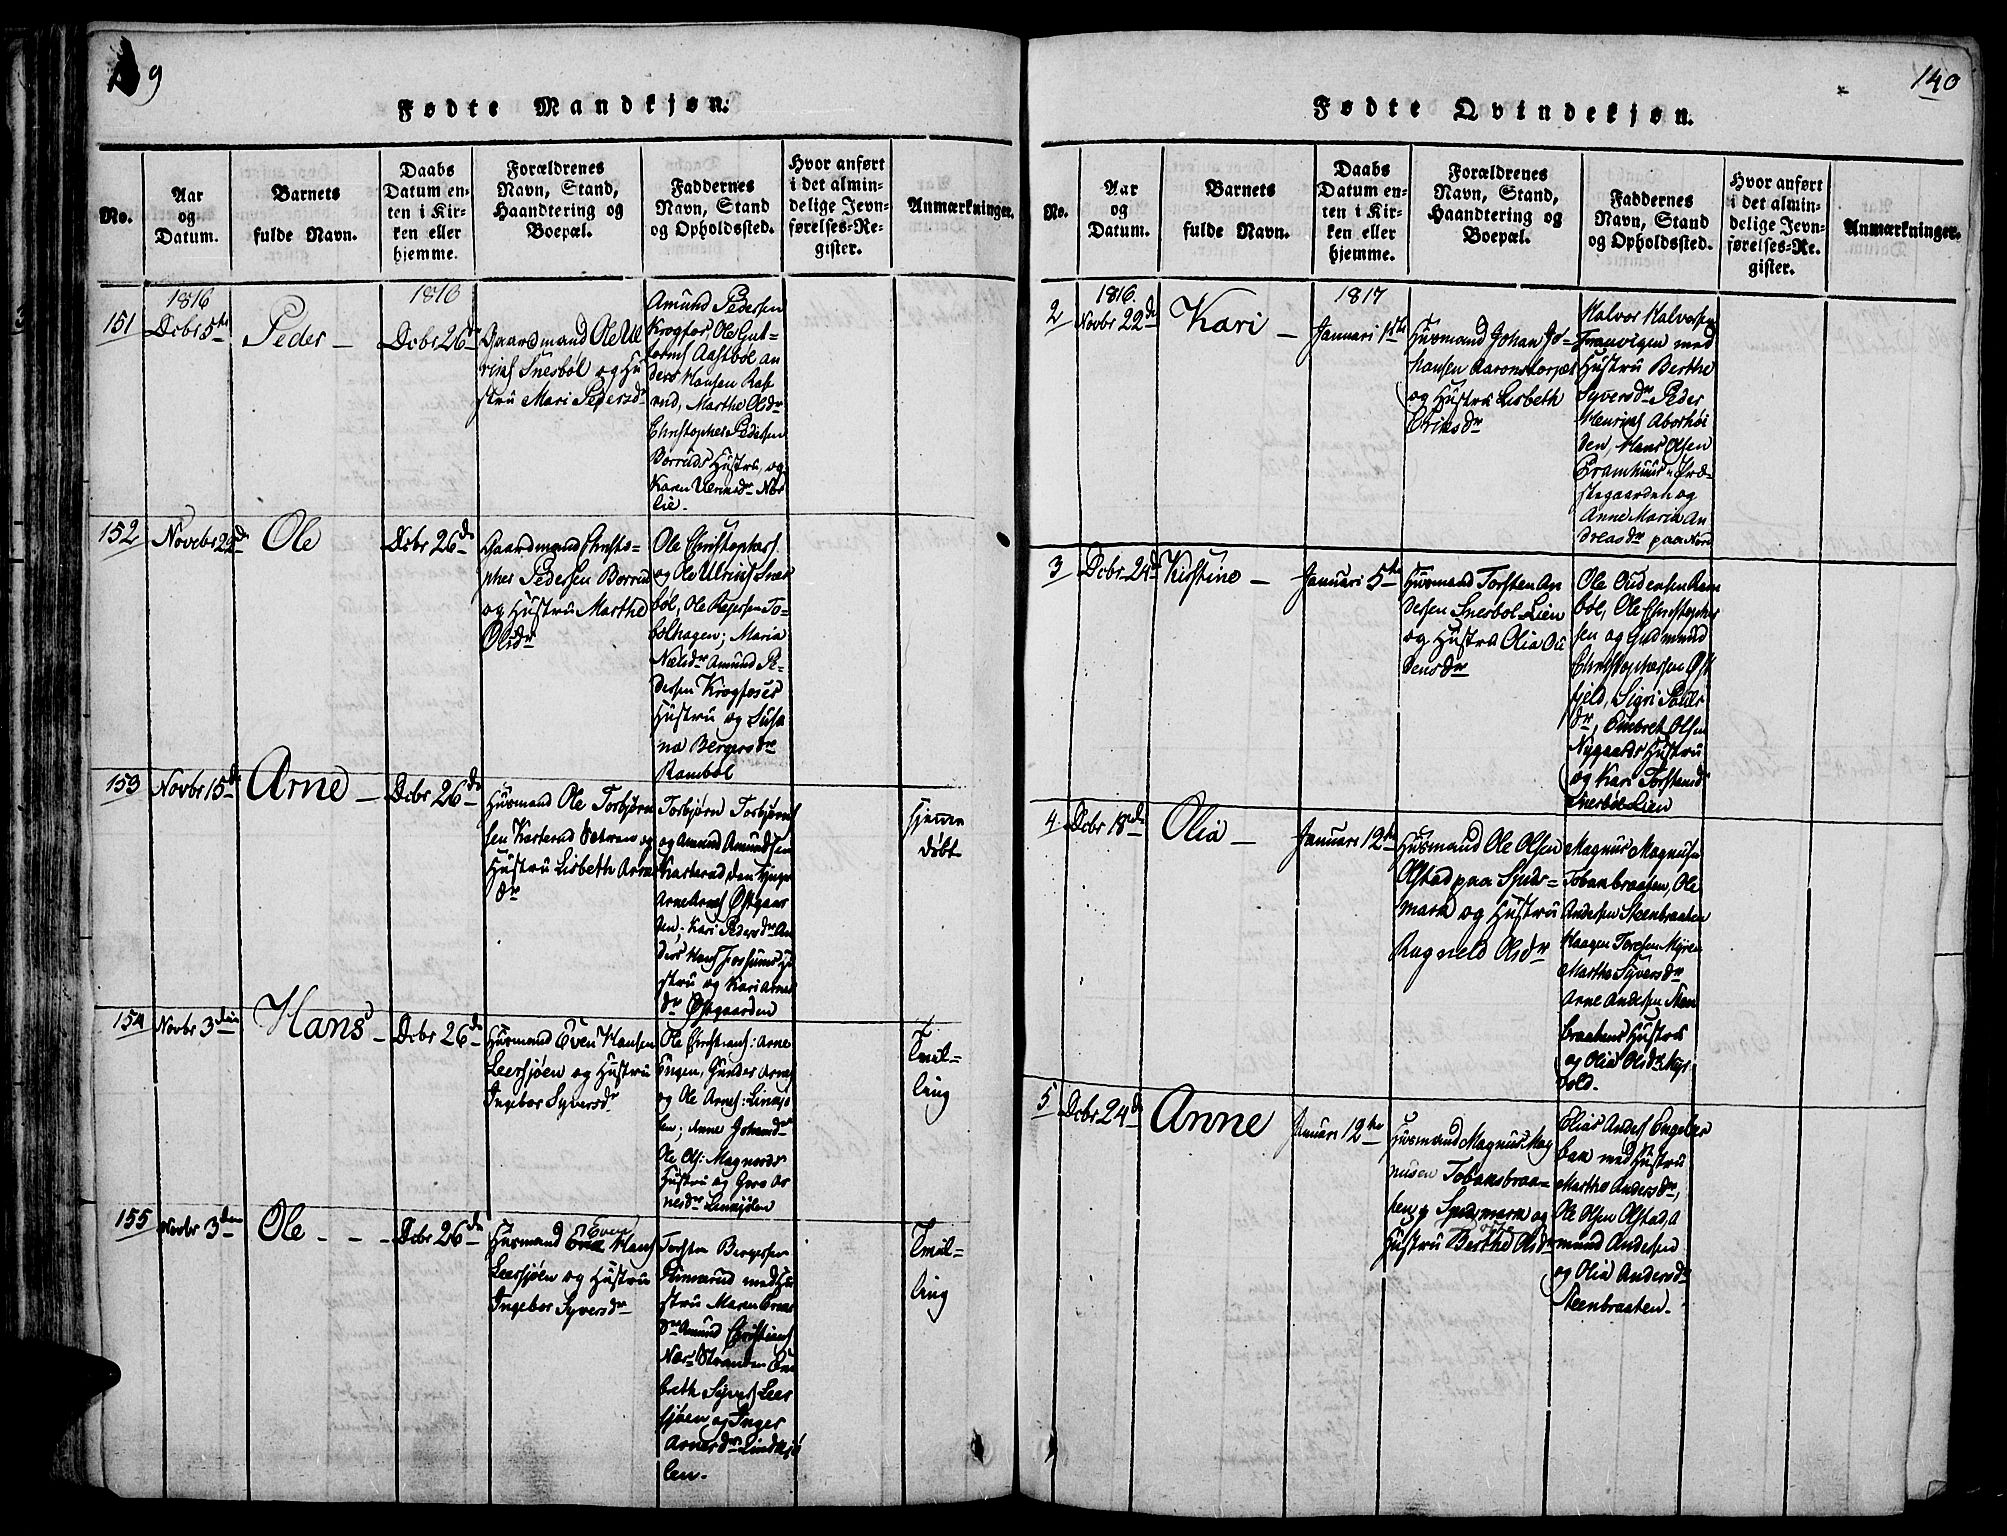 139
Fødte Mandkjøn.
No.
Aar
og
Datum.
Barnets
fulde Navn.
Daabs
Datum en-
ten i Kir-
ken eller
hjemme.
Forældrenes
Navn, Stand,
Haandtering og
Boepæl.
Faddernes
Navn, Stand
og Opholdssted.
Hvor anført
i det almin-
delige Jevn-
førelses-Re-
gister.
Anmærkninger.
151
1816
Dcbr 5te
Peder
1816
Dcbr 26de
Gaardmand Ole Ul
richs Snesbøl og Hu
stru Mari Pedersdr
Amund Pedersen
Krogfos, Ole Gut-
torms Aasbøl an
ders Hansen Raf
ond, Marthe Olsdr
Christopher Pedersen
Borruds Hustru, og
Karen Ulriksdr Nor
lie.
152
Novebr 29de
Ole
Dcbr 26de
Gaardmand Christo-
pher Pedersen Borrud
og Hustru Marthe
Olsdr
Ole Christophers
og Ole Ulrichs Snes
bøl, Ole Reiersen To-
bølhagen; Maria
Nielsdr Amund Pe-
dersen Krogfoses
Hustru og Susa
na Bergersdr
Rambøl
153
Novbr 15de
Arne
Dcbr 26de
Husmand Ole Torbjørn
sen Karterud Sætren og
Hustru Lisbeth Arnes
dr
Torbjørn Torbjørns
og Amund Amundsen
Karterud, den Yngre
Arne Arnes Østgaar
den; Kari Pedersdr An
ders Hans Fossums Hu
stru og Kari Arnes
dr Østgaarden
hjemme
døbt
154
Novbr 3die
Hans
Dcbr 26de
Husmand Even Hansen
Leersjøen og Hustru
Ingebor Syversdr
Ole Christians: Arne
Engen, Gunder Arnes
og Ole Arnes: Lindsjø
len; Anne Johansdr
Ole Ols: Magnords
Hustru og Goro Ar
nesdr Lindsjølen
Tvil-
ling
155
Novbr 3den
Ole
Dcbr 26de
Husmand Even Hans
Leersjøen og Hustru
Ingebor Syversdr
Torsten Bergersen
Grimsrud med Hu
stru Maren Evens
dr Amund Christians
Nær-Stranden Em
breth Syvers Leer
sjøen og Inger
Arnesdr Lindsjø
len.
Tvil-
ling
140
Fødte Qvindekjøn.
No.
Aar
og
Datum.
Barnets
fulde Navn.
Daabs
Datum en-
ten i Kir-
ken eller
hjemme.
Forældrenes
Navn, Stand,
Haandtering og
Boepæl.
Faddernes
Navn, Stand
og Opholdssted.
Hvor anført
i det almin-
delige Jevn-
førelses-Re-
gister.
Anmærkninger.
2
1816.
Novbr 22de
Kari
1817
Januari 1ste
Husmand Johan Jo-
hansen Aaronstorpet
og Hustru Lisbeth
Eriksdr
Halvor Halvorsen
Tranvigen med
Hustru Berthe
Syversdr Peder
Henrichs Aborhøi
den, Hans Olsen
Bramhuus - Præ-
stegaarden og
Anne Maria An
dreasdr paa Nord
3
Dcbr 24de
Kirstine
Januari 5te
Husmand Torsten An
dersen Snesbøl-Lien
og Hustru Olia Au
densdr
Ole Oudensen Ram
bøl, Ole Christopher
sen og Gudmund
Christophersen Øst
fjeld, Sigri Peders
dr, Embret Olsen
Nygaards Hustru
og Kari Torstensdr
Snesbøl Lien
4.
Dcbr 18de
Olia
Januari 12te
Husmand Ole Olsen
Olstad paa Spids-
mark og Hustru
Ragneld Olsdr
Magnus Magnusen
Tobakbraaten, Ole
Andersen Steenbraaten
Haagen Toresen Myren
Marthe Syversdr
Arne Andersen Steen
braatens Hustru
og Olia Olsdr Myr
vold.
5
Dcbr 24de
Anne
Januari 12te
Husmand Magnus Mag
nusen Tobaksbraa-
ten p Spidsmark og
Hustru Berthe Olsdr
Elias Anders Engeber
bak med Hustru
Marthe Andersdr,
Ole Olsen Olstad, A
mund Andersen
og Olia Andersdr
Steenbraaten.